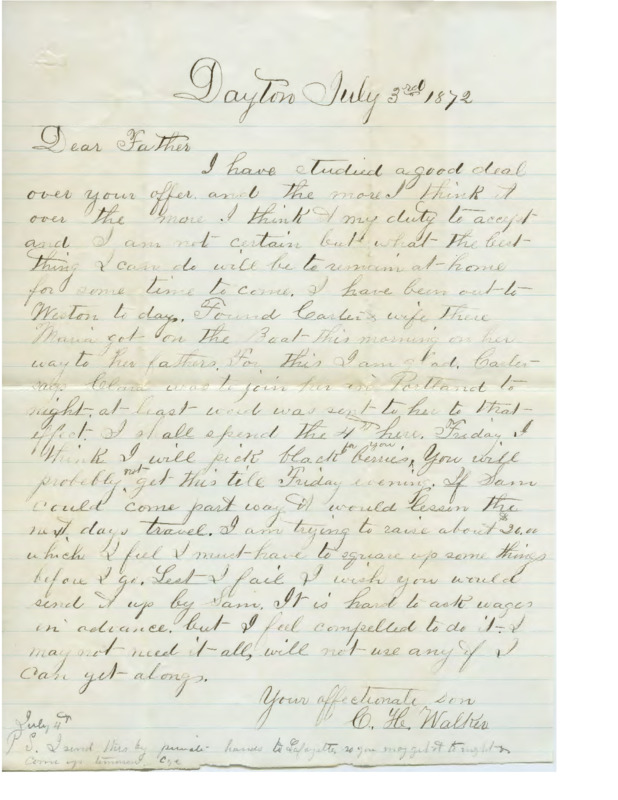 Dayton July 3rd 1872
Dear Father
I have studied a good deal
over your offer. and the more I think it
over the more I think it my duty to accept
and I am not certain but what the best
thing I can do will be to remain at home
for some time to come. I have been out to
Weston to day. Found Carter & wife there
Maria got on the Boat this morning on her
way to her fathers. For this I am glad. Carter
says was to join her in Portland to
night. at least word was sent to her to that
effect. I shall spend the 4th here. Friday I
think I will pick black berries, for you You will
probably not get this till Friday evening. If Sam
could come part way it would lessen the
next days travel. I am trying to raise about $20.00
which I feel I must have to square up some things
before I go. Lest I fail I wish you would
send it up by Sam. It is hard to ask wages
in advance. but I feel compelled to do it. I
may not need it all, will not use any if I
can get along.
Your affectionate son
C. H. Walker
July 4th
P S. I send this by private hands to Lafayette so you may get it to night &
come up tomorrow